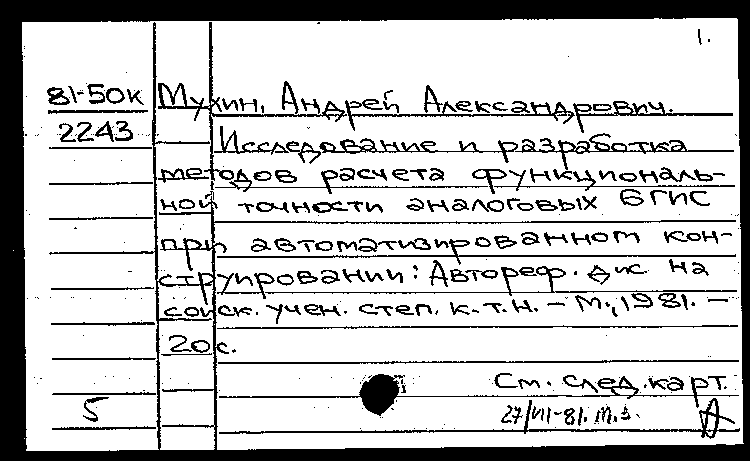 1.
81-50к Мухин, Андрей Александрович.
2243 Исследование и разработка
методов расчета функциональ-
ной точности аналоговых БГИС
при автоматизированном кон-
струировании: Автореф. дис на
соиск. учен. степ. к.т.н. – М., 1981. –
20 с.
См. след. карт.
5 27/VII-81.